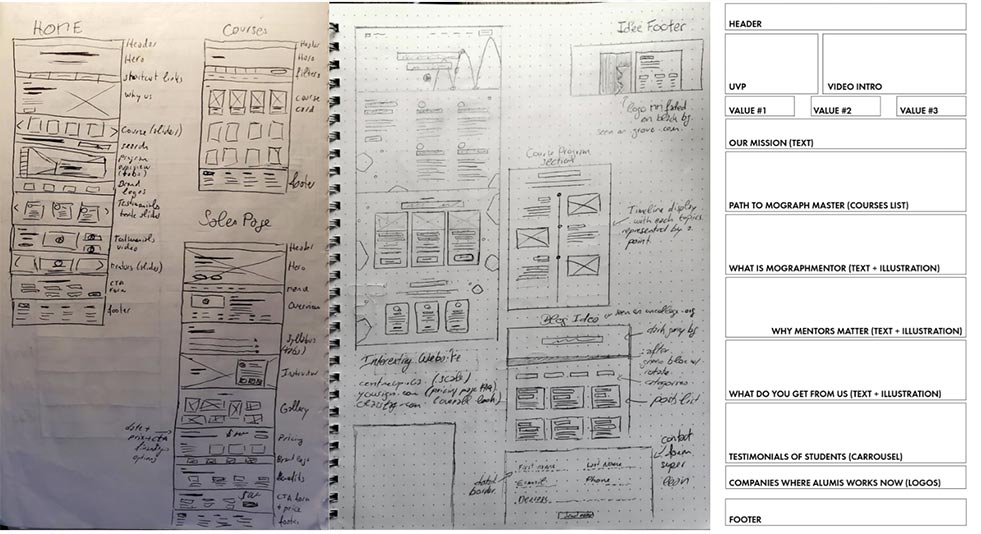 HOME
Header
Hero
shortcut links
why us
Course (slides)
search
Program
overview
(tabs)
Brand
logos
Testimonials
texte slides
Testimonials
video
Mentors (slides)
CTA
form
footer
Courses
Header
Hero
filters
course
card
footer
Sales Page
Header
Hero
menu
Overview
Syllabus
(tabs)
Instructor
Gallery
date +
price + CTA
Pricing
Brand logo
Benefits
CTA form
+ price
footer
Idée Footer
logo
on black bg
seen on grove.com
Course Program
section
Timeline display
with each topics
represented by a
point.
Blog Idea
dark gray bg
after
rotate
categories
posts list
Interesting Website
(scale)
(pricing page FAQ)
(overall look)
contact
form
super
clean
dotted
border
First name
Last Name
Email
Phone
HEADER
UVP
VIDEO INTRO
VALUE #1
VALUE #2
VALUE #3
OUR MISSION (TEXT)
PATH TO MOGRAPH MASTER (COURSES LIST)
WHAT IS MOGRAPHMENTOR (TEXT + ILLUSTRATION)
WHY MENTORS MATTER (TEXT + ILLUSTRATION)
WHAT DO YOU GET FROM US (TEXT + ILLUSTRATION)
TESTIMONIALS OF STUDENTS (CARROUSEL)
COMPANIES WHERE ALUMIS WORKS NOW (LOGOS)
FOOTER